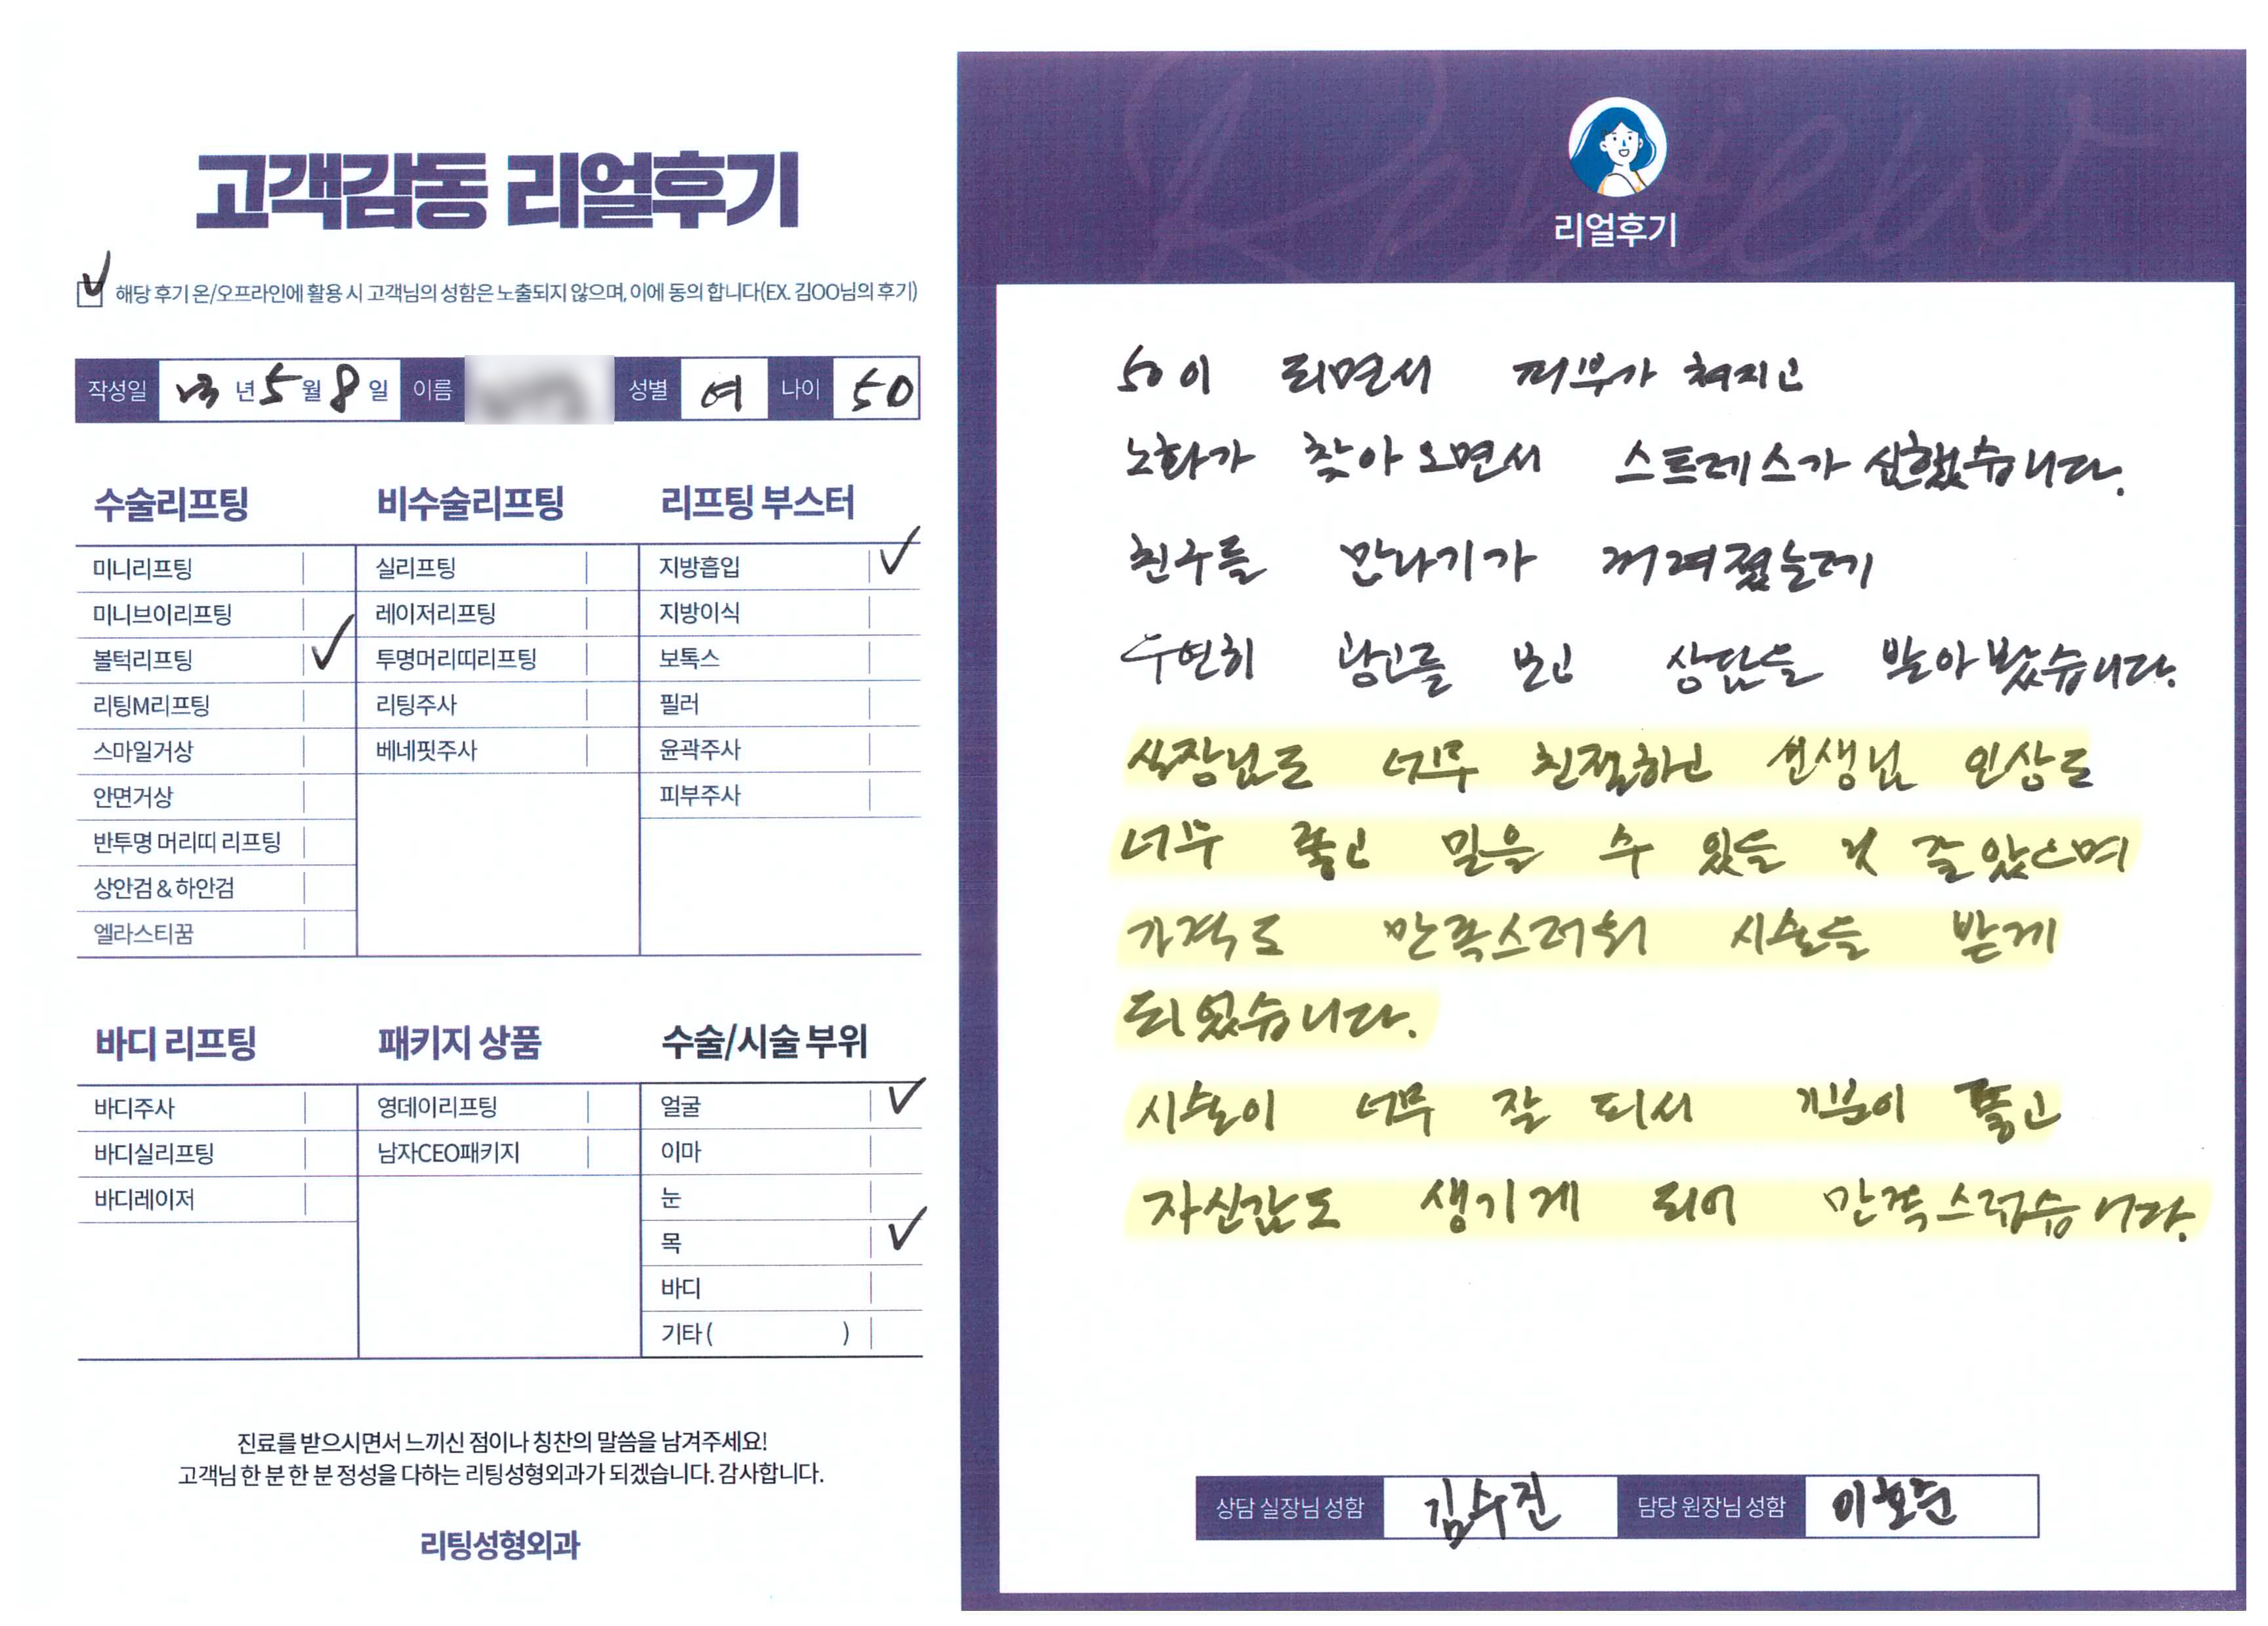 고객감동 리얼후기
해당 후기 온/오프라인에 활용 시 고객님의 성함은 노출되지 않으며, 이에 동의 합니다(EX. 김OO님의 후기)
작성일 23 년 5 월 8 일 이름 성별 여 나이 50
수술리프팅 비수술리프팅 리프팅 부스터
미니리프팅 실리프팅 지방흡입
미니브이리프팅 레이저리프팅 지방이식
볼턱리프팅 투명머리띠리프팅 보톡스
리팅M리프팅 리팅주사 필러
스마일거상 베네핏주사 윤곽주사
안면거상 피부주사
반투명 머리띠 리프팅
상안검 & 하안검
엘라스티꿈
바디 리프팅 패키지 상품 수술/시술 부위
바디주사 영데이리프팅 얼굴
바디실리프팅 남자CEO패키지 이마
바디레이저 눈
목
바디
기타 ( )
진료를 받으시면서 느끼신 점이나 칭찬의 말씀을 남겨주세요!
고객님 한 분 한 분 정성을 다하는 리팅성형외과가 되겠습니다. 감사합니다.
리팅성형외과
Review
리얼후기
50이 되면서 피부가 쳐지고
노화가 찾아오면서 스트레스가 심했습니다.
친구를 만나기가 꺼려졌는데
우연히 광고를 보고 상담을 받아봤습니다.
실장님도 너무 친절하고 선생님 인상도
너무 좋고 믿을 수 있을 것 같았으며
가격도 만족스러워 시술을 받게
되었습니다.
시술이 너무 잘 되서 기분이 좋고
자신감도 생기게 되어 만족스럽습니다.
상담 실장님 성함 김수진 담당 원장님 성함 이호준